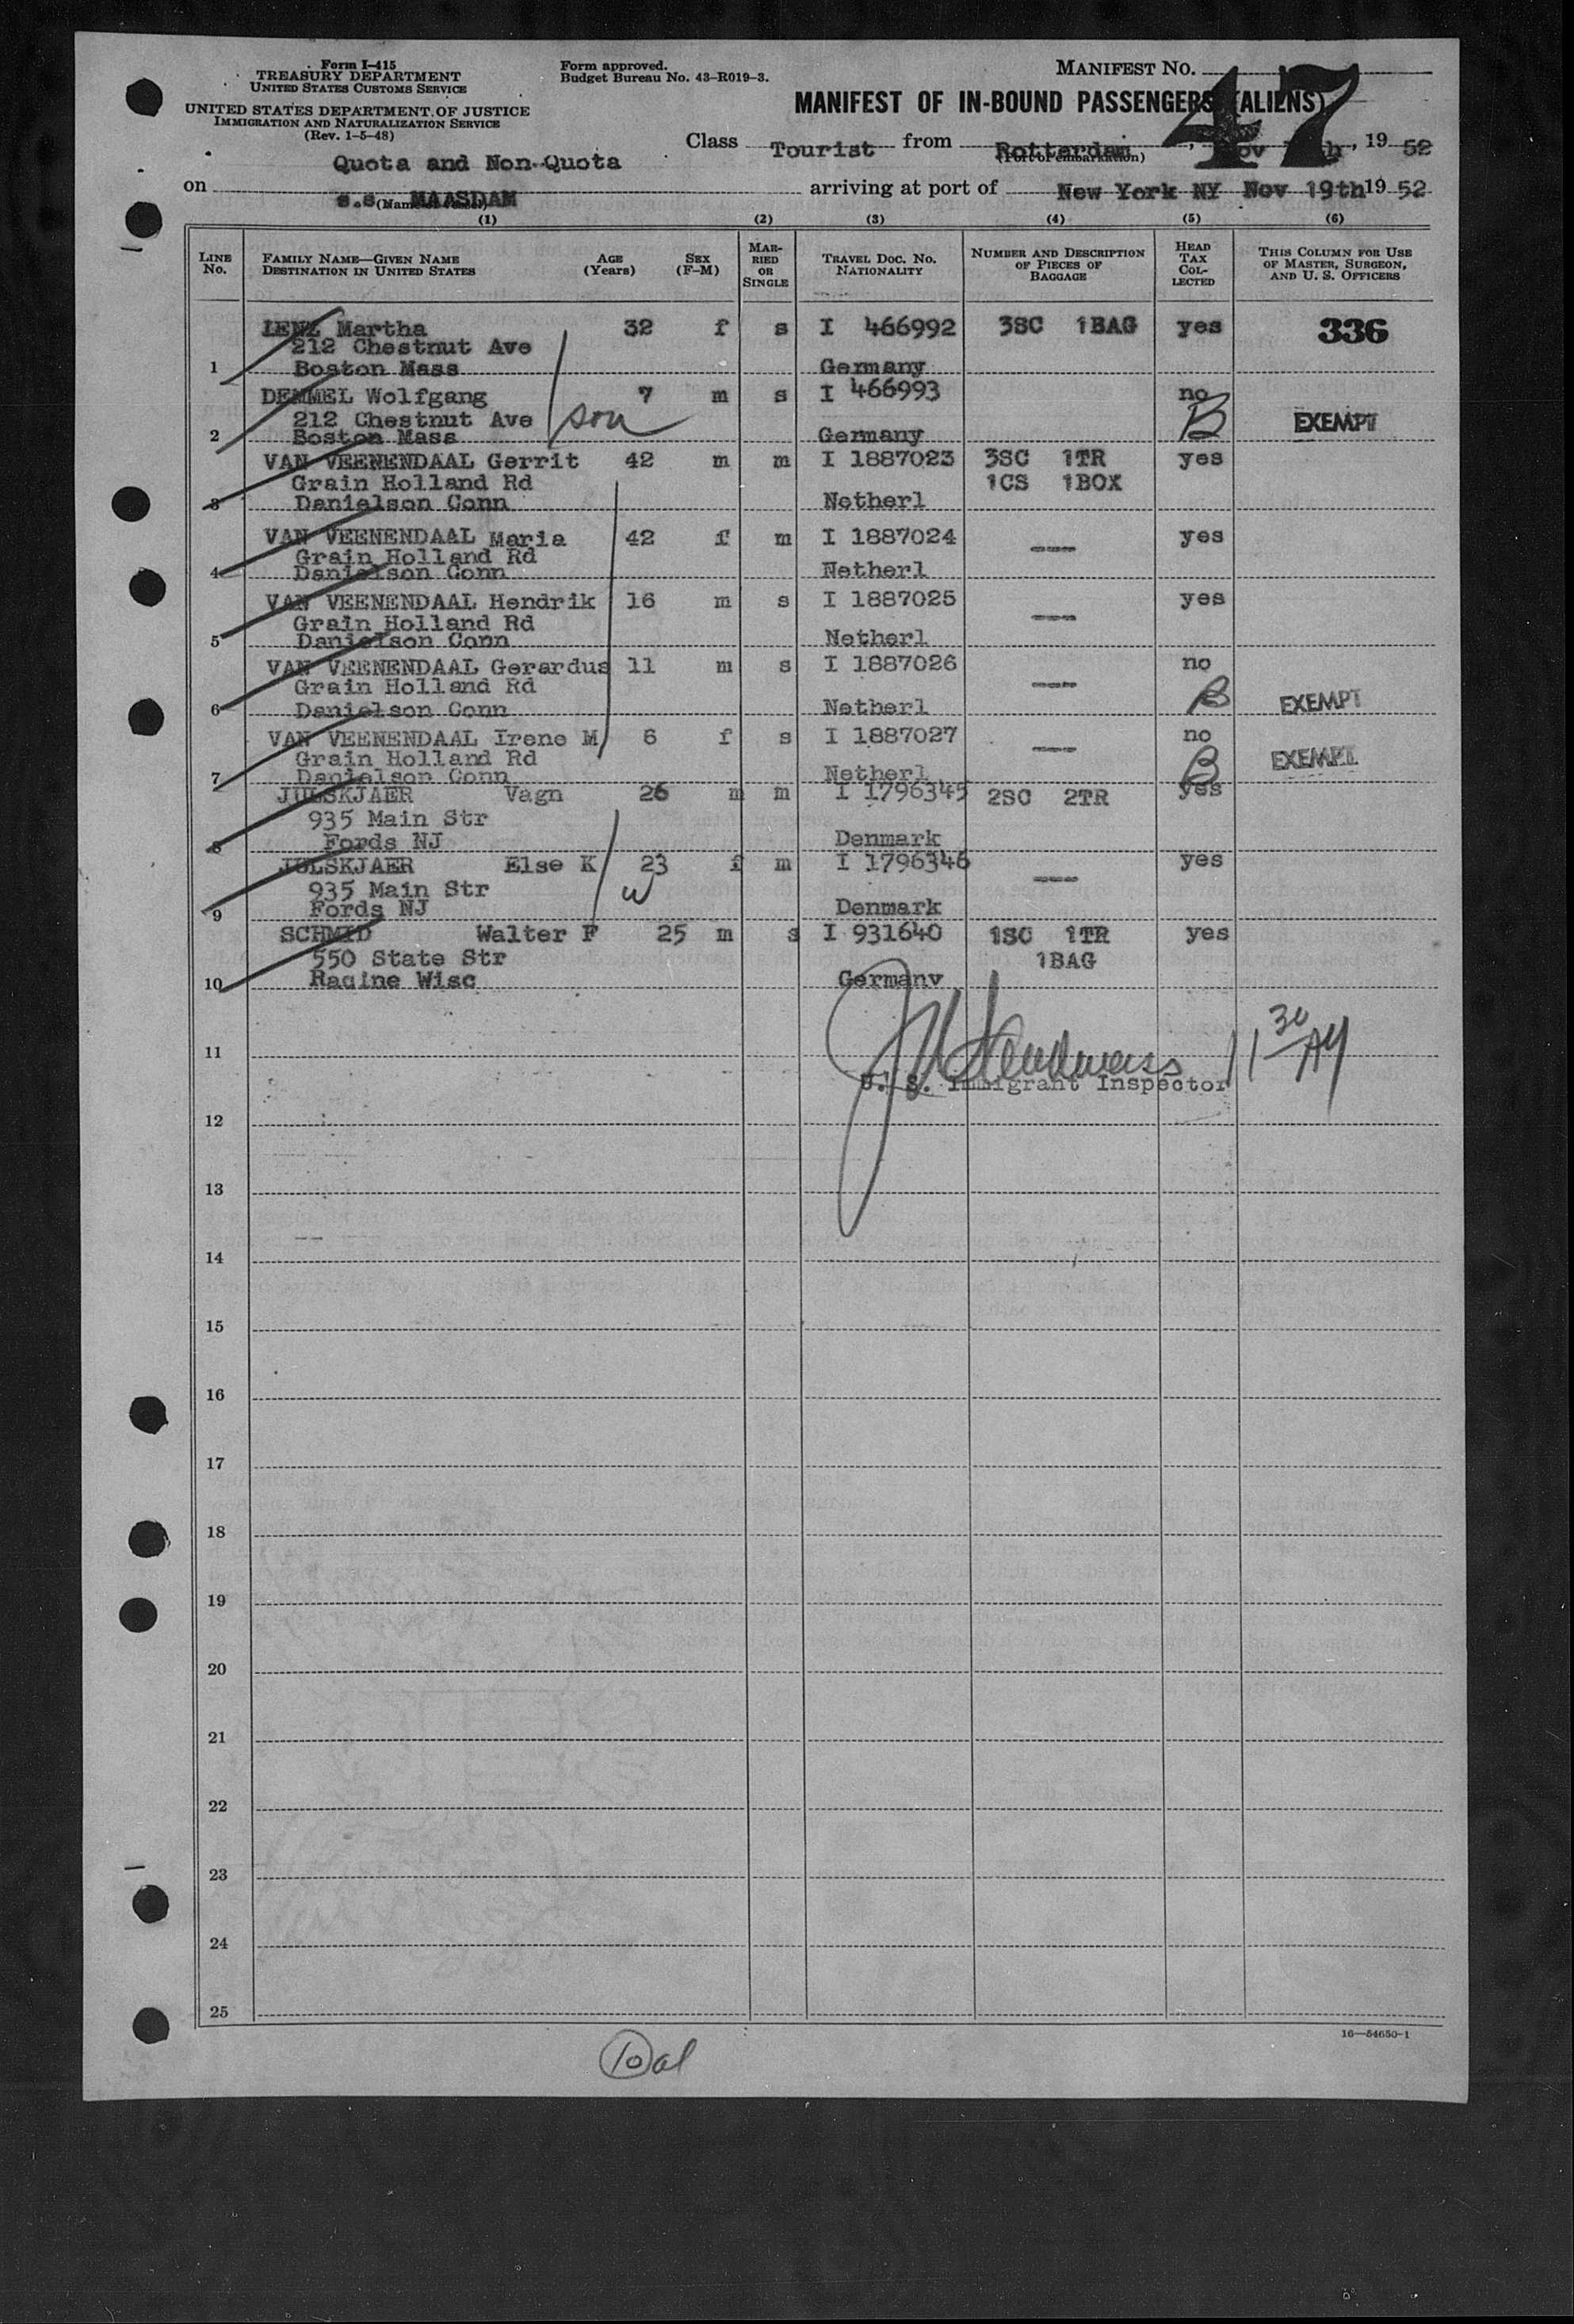 Form I-415
TREASURY DEPARTMENT
UNITED STATES CUSTOMS SERVICE
UNITED STATES DEPARTMENT OF JUSTICE
IMMIGRATION AND NATURALIZATION SERVICE
(Rev. 1-5-48)
Form approved.
Budget Bureau No. 43-R019-3.
MANIFEST NO.
47
MANIFEST OF IN-BOUND PASSENGERS (ALIENS)
Class Tourist from Rotterdam, Nov , 19 52
(Port of embarkation)
Quota and Non-Quota
on s.s. MAASDAM arriving at port of New York NY Nov 19th 19 52
(1) (2) (3) (4) (5) (6)
LINE No. FAMILY NAME—GIVEN NAME DESTINATION IN UNITED STATES AGE (Years) SEX (F-M) MARRIED OR SINGLE TRAVEL DOC. NO. NATIONALITY NUMBER AND DESCRIPTION OF PIECES OF BAGGAGE HEAD TAX COLLECTED THIS COLUMN FOR USE OF MASTER, SURGEON, AND U. S. OFFICERS
Martha 32 f s I 466992 3SC 1BAG yes 336
212 Chestnut Ave
1 Boston Mass Germany
DEMMEL Wolfgang 7 m s I 466993 no
212 Chestnut Ave son B EXEMPT
2 Boston Mass Germany
VAN VEENENDAAL Gerrit 42 m m I 1887023 3SC 1TR yes
Grain Holland Rd 1CS 1BOX
3 Danielson Conn Netherl
VAN VEENENDAAL Maria 42 f m I 1887024 --- yes
Grain Holland Rd
4 Danielson Conn Netherl
VAN VEENENDAAL Hendrik 16 m s I 1887025 --- yes
Grain Holland Rd
5 Danielson Conn Netherl
VAN VEENENDAAL Gerardus 11 m s I 1887026 --- no
Grain Holland Rd B EXEMPT
6 Danielson Conn Netherl
VAN VEENENDAAL Irene M 6 f s I 1887027 --- no
Grain Holland Rd B EXEMPT
7 Danielson Conn Netherl
JULSKJAER Vagn 26 m m I 1796345 2SC 2TR yes
935 Main Str
8 Fords NJ Denmark
JULSKJAER Else K 23 f m I 1796346 --- yes
935 Main Str w
9 Fords NJ Denmark
SCHMID Walter F 25 m s I 931640 1SC 1TR yes
550 State Str 1BAG
10 Racine Wisc Germany
11 11 30 AM
U. S. Immigrant Inspector
12
13
14
15
16
17
18
19
20
21
22
23
24
25
16—54650-1
10 al